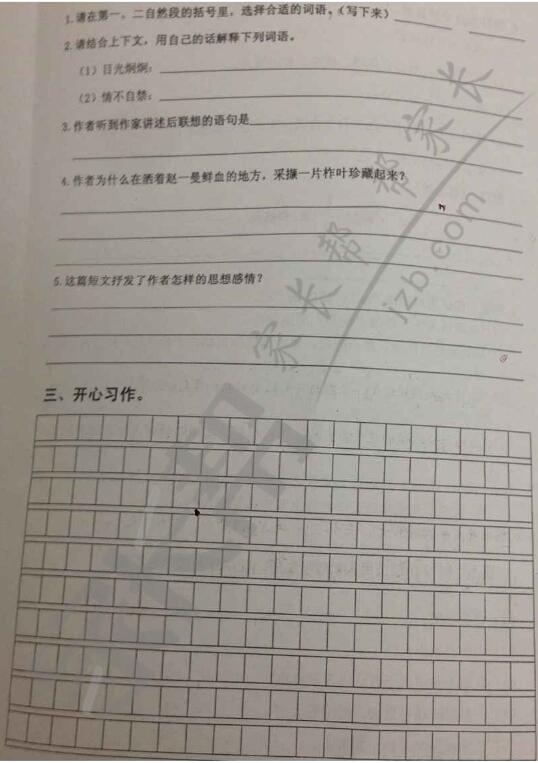 1.请在第一、二自然段的括号里，选择合适的词语。(写下来)
2.请结合上下文，用自己的话解释下列词语。
(1)目光炯炯：
(2)情不自禁：
3.作者听到作家讲述后联想的语句是
4.作者为什么在洒着赵一曼鲜血的地方，采撷一片柞叶珍藏起来？
5.这篇短文抒发了作者怎样的思想感情？
三、开心习作。
家长帮
jzb.com
家长帮